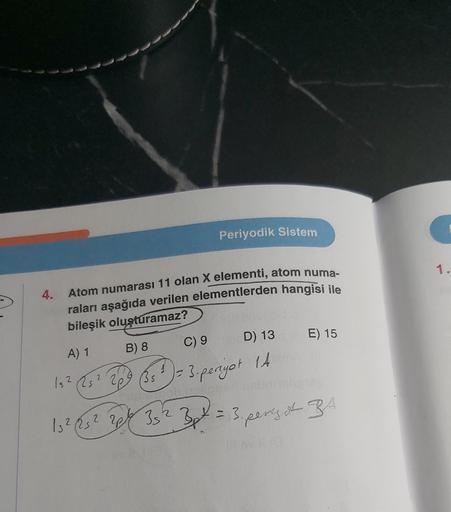 Periyodik Sistem
4. Atom numarası 11 olan X elementi, atom numa-
raları aşağıda verilen elementlerden hangisi ile
bileşik oluşturamaz?
A) 1 B) 8 C) 9 D) 13 E) 15
1s² 2s² 2p⁶ 3s¹ = 3. periyot 1A
1s² 2s² 2p⁶ 3s² 3p¹ = 3. periyot 3A
1.